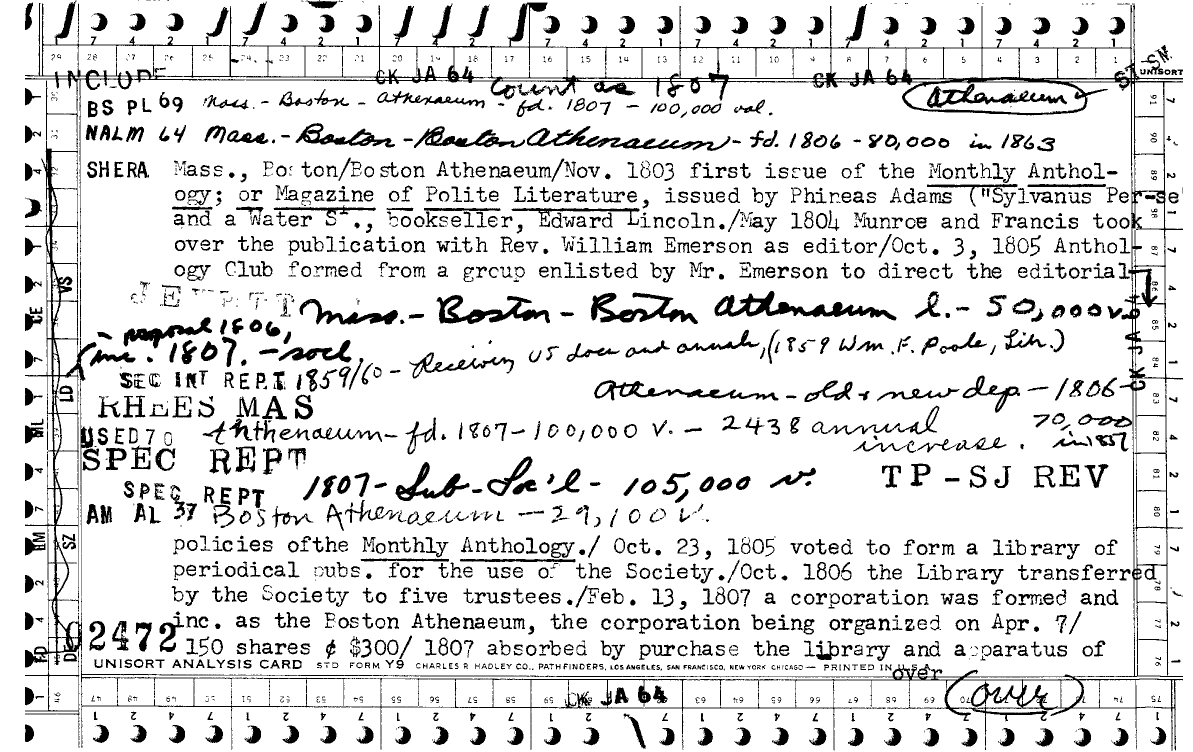 INCLUDE CK JA 64 Count as 1807 CK JA 64
BS PL 69 Mass. - Boston - Athenaeum - fd. 1807 - 100,000 vol. Athenaeum
UNISORT
NALM 64 Mass. - Boston - Boston Athenaeum - fd. 1806 - 80,000 in 1863
SHERA Mass., Boston/Boston Athenaeum/Nov. 1803 first issue of the Monthly Anthol-
ogy; or Magazine of Polite Literature, issued by Phineas Adams ("Sylvanus Per-se"
and a Water St., bookseller, Edward Lincoln./May 1804 Munroe and Francis took
over the publication with Rev. William Emerson as editor/Oct. 3, 1805 Anthol-
ogy Club formed from a group enlisted by Mr. Emerson to direct the editorial
JEWETT Mass. - Boston - Boston Athenaeum l. - 50,000 v.
- proposal 1806,
inc. 1807. - socl.
SEC INT REPT 1859/60 - Receiving US docs and annals, (1859 Wm. F. Poole, Lib.)
RHEES MAS Athenaeum - old & new dep. - 1806 -
70,000 in 1857
USED 70 Athenaeum - fd. 1807 - 100,000 v. - 2438 annual increase.
SPEC REPT
SPEC REPT 1807 - Sub - Soc'l - 105,000 v. TP-SJ REV
AM AL 37 Boston Athenaeum - 29,100 v.
policies ofthe Monthly Anthology./ Oct. 23, 1805 voted to form a library of
periodical pubs. for the use of the Society./Oct. 1806 the Library transferred
by the Society to five trustees./Feb. 13, 1807 a corporation was formed and
inc. as the Boston Athenaeum, the corporation being organized on Apr. 7/
02472 150 shares ¢ $300/ 1807 absorbed by purchase the library and apparatus of
UNISORT ANALYSIS CARD STD FORM Y9 CHARLES R HADLEY CO., PATHFINDERS, LOS ANGELES, SAN FRANCISCO, NEW YORK CHICAGO — PRINTED IN U.S.A.
over
CK JA 64 over